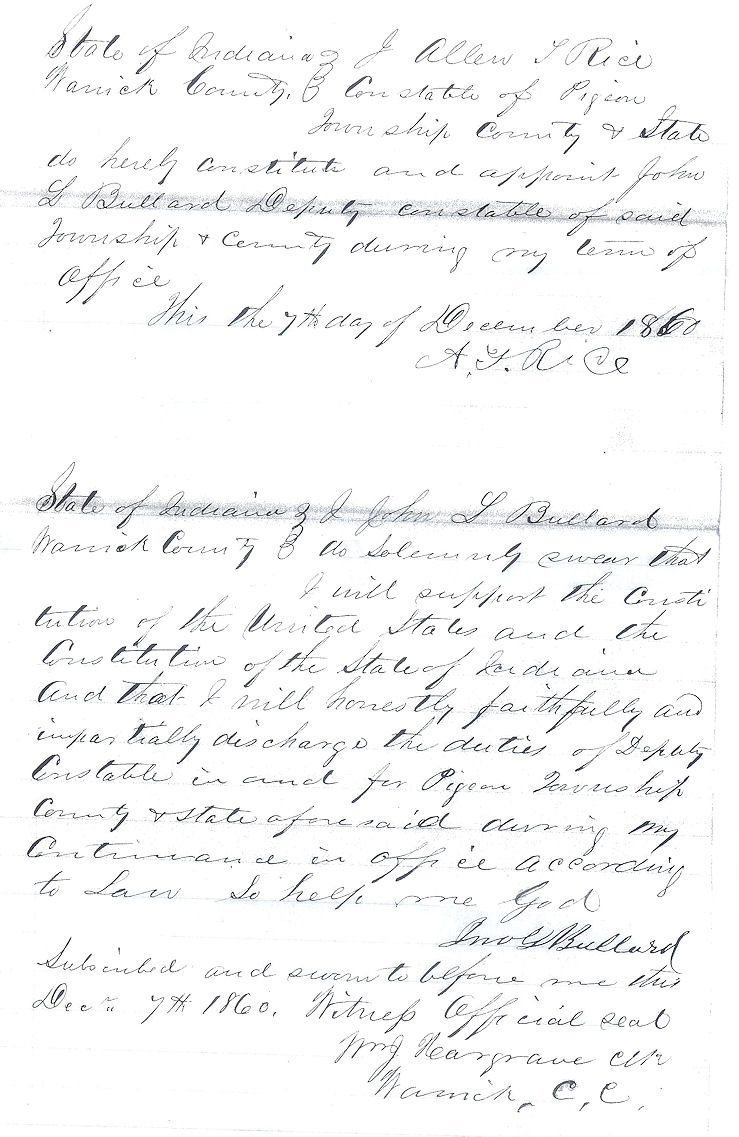 State of Indiana } I Allen T Rice
Warrick County. } Constable of Pigeon
Township County & State
do herely constitute and appoint John
L Bullard Deputy constable of said
Township & County durring my term of
Office
This the 7th day of December 1860
A. T. Rice
State of Indiana } I John L Bullard
Warrick County } do Solemnly swear that
I will support the Consti
tution of the United States and the
Constitution of the State of Indiana
And that I will honestly faithfully and
impartially discharge the duties of Deputy
Constable in and for Pigeon Township
County & State aforesaid durring my
Continuance in office according
to Law So help me God
Jno L Bullard
Subscribed and sworn to before me this
Dec. 7th 1860. Witness Official seal
Wm J Hargrave Clk
Warrick, C, C,